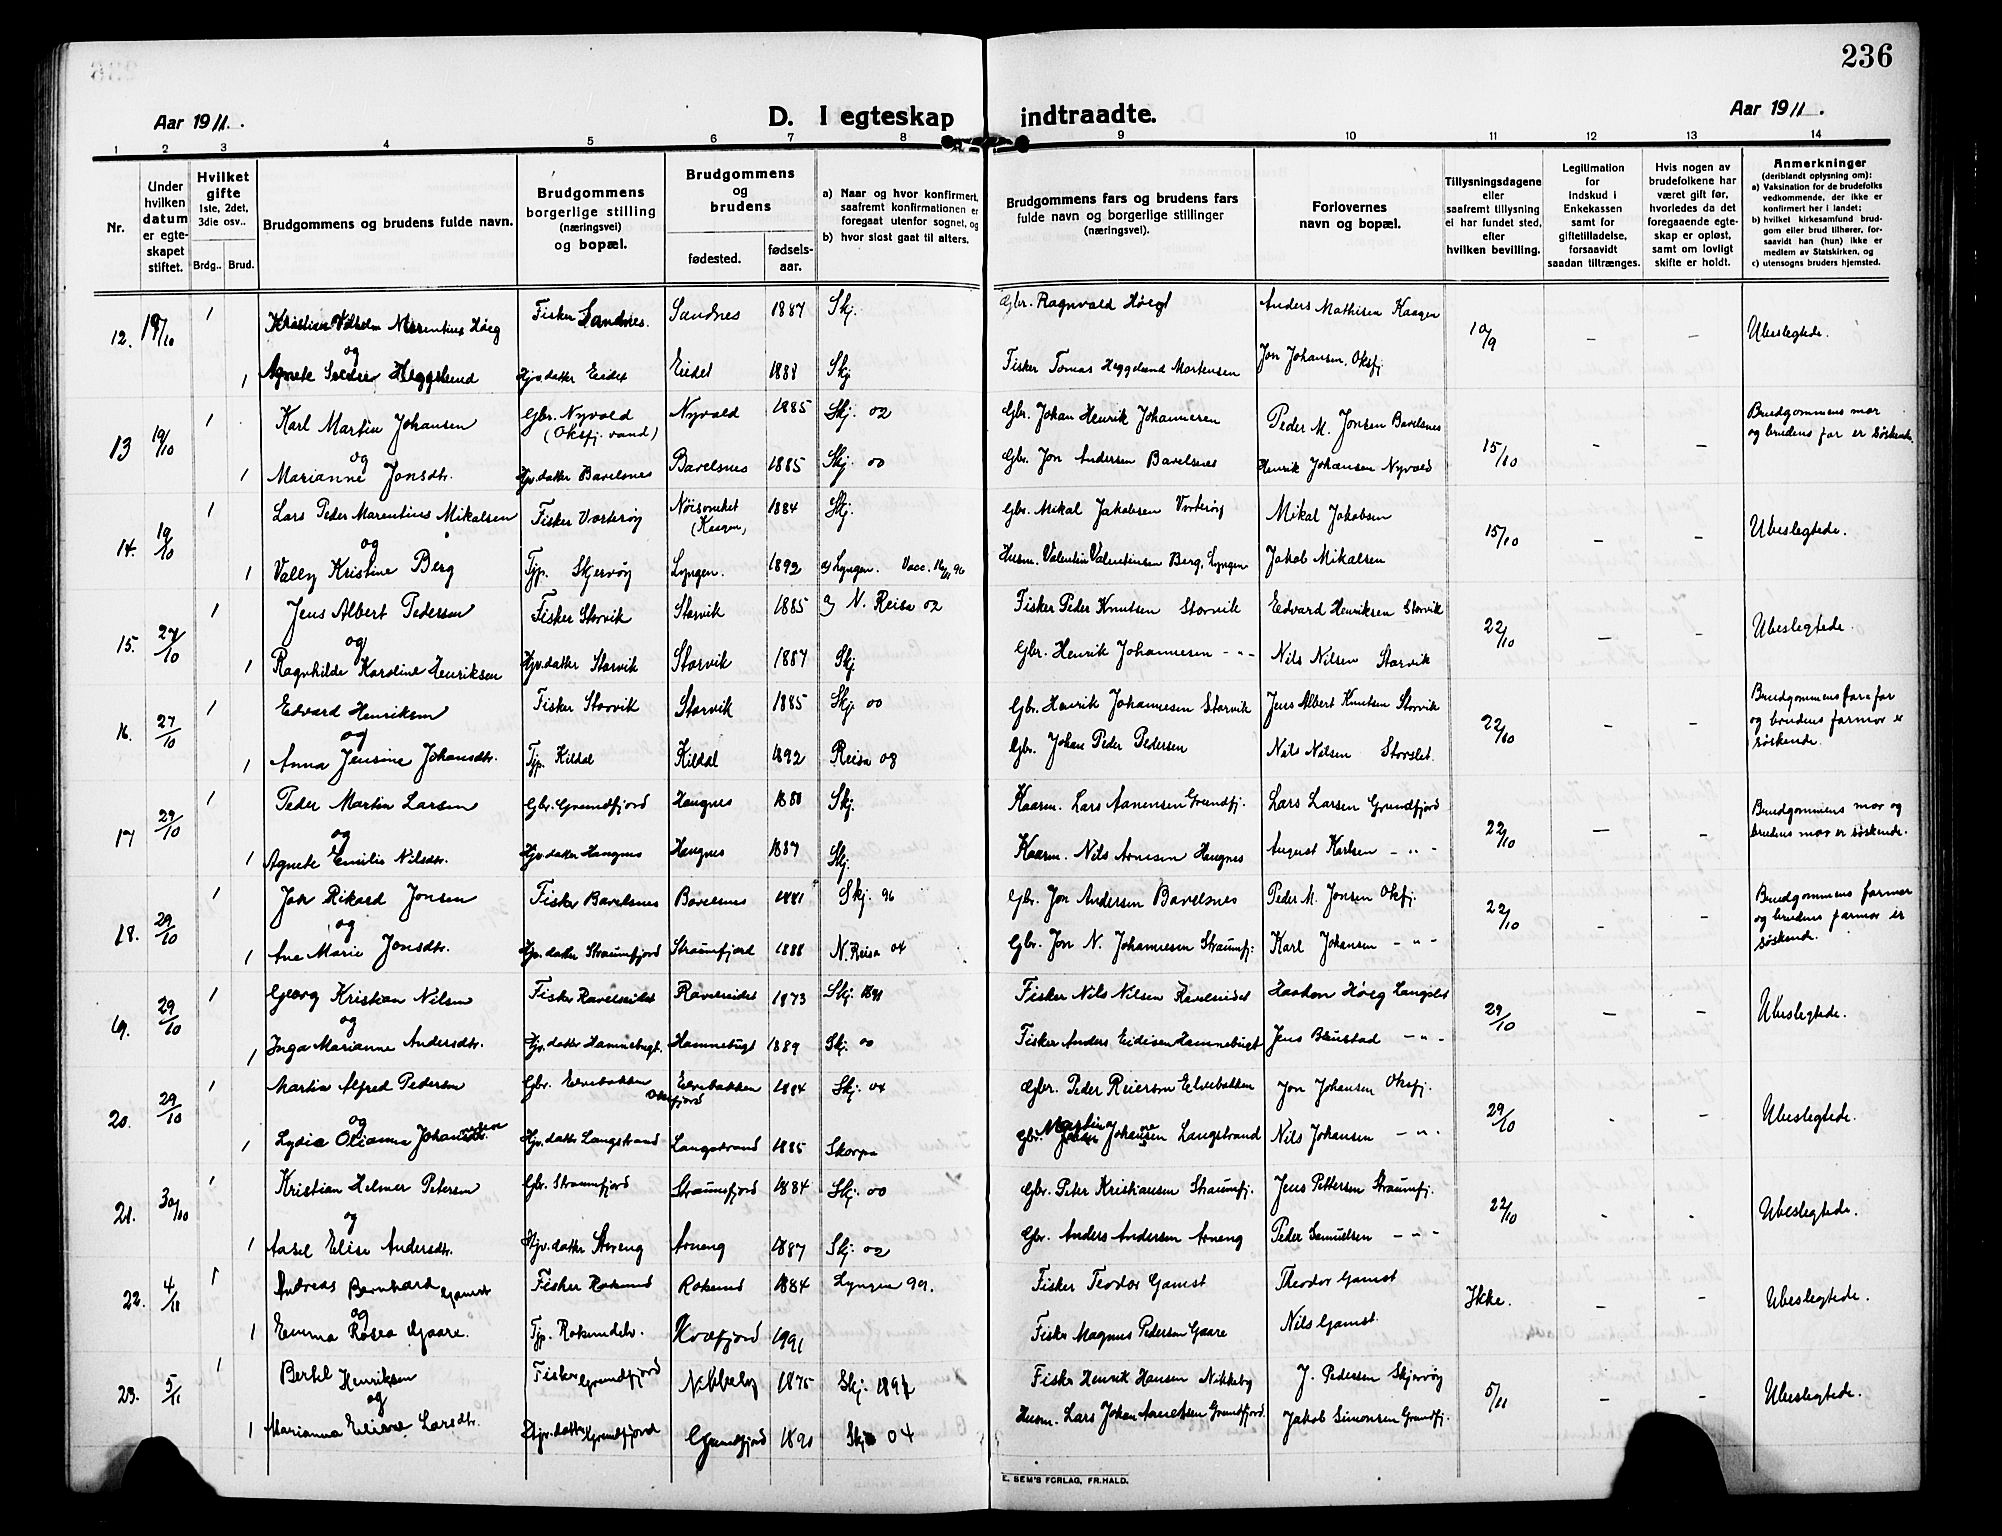 236
Aar 1911.
D. I egteskap indtraadte.
Aar 1911.
1 2 3 4 5 6 7 8 9 10 11 12 13 14
Nr.
Under hvilken datum er egteskapet stiftet.
Hvilket gifte 1ste, 2det, 3die osv..
Brdg.. Brud.
Brudgommens og brudens fulde navn.
Brudgommens borgerlige stilling (næringsvei) og bopæl.
Brudgommens og brudens
fødested.
fødselsaar.
a) Naar og hvor konfirmert, saafremt konfirmationen er foregaat utenfor sognet, og
b) hvor sidst gaat til alters.
Brudgommens fars og brudens fars fulde navn og borgerlige stillinger (næringsvei).
Forlovernes navn og bopæl.
Tillysningsdagene eller saafremt tillysning ei har fundet sted, efter hvilken bevilling.
Legitimation for indskud i Enkekassen samt for giftetilladelse, forsaavidt saadan tiltrænges.
Hvis nogen av brudefolkene har været gift før, hvorledes da det foregaaende egteskap er opløst, samt om lovligt skifte er holdt.
Anmerkninger (deriblandt oplysning om):
a) Vaksination for de brudefolks vedkommende, der ikke er konfirmert her i landet;
b) hvilket kirkesamfund brudgom eller brud tilhører, forsaavidt han (hun) ikke er medlem av Statskirken, og
c) utensogns bruders hjemsted.
12. 1 Kristian Vilhelm Marentius Høeg Fisker Sandnes. Sandnes 1887 Skj. Gbr. Ragnvald Høeg Anders Mathisen Kaagen 10/9 – – Ubeslegtede.
og
1 Agnete Heggelund Hjv. datter Eidet Eidet 1888 Skj Fisker Tomas Heggelund Mortensen Jon Johansen, Oksfj
13 19/10 1 Karl Martin Johansen Gbr. Nyvold (Oksfj. vand) Nyvold 1885 Skj. 02 Gbr. Johan Henrik Johannesen Peder M. Jonsen Bavelsnes 15/10 – – Brudgommens mor og brudens far er søskende.
og
1 Marianne Jonsdtr. Hjv. datter Bavelsnes Bavelsnes 1885 Skj. 00 Gbr. Jon Andersen Bavelsnes Henrik Johansen Nyvold
14. 19/10 1 Lars Peder Marentius Mikalsen Fisker Vorterøy (Kaagen) 1884 Skj. Gbr. Mikal Jakobsen Vorterøy Mikal Jakobsen 15/10 – – Ubeslegtede.
og
1 Vally Kristine Berg Tjp. Skjervøy Lyngen. 1892 a) Lyngen. Vacc. Husm. Valentin Valentinsen Berg, Lyngen Jakob Mikalsen
15. 27/10 1 Jens Albert Pedersen Fisker Storvik Storvik 1885 a) N. Reisa 02 Fisker Peder Knutsen Storvik Edvard Henriksen Storvik 22/10 – – Ubeslegtede.
og
1 Ragnhilde Karoline Henriksen Hjv. datter Storvik Storvik 1887 Skj Gbr. Henrik Johannesen – " – Nils Nilsen Storvik
16. 27/10 1 Edvard Henriksen Fisker Storvik Storvik 1885 Skj. 00 Gbr. Henrik Johannesen Storvik Jens Albert Knutsen Storvik 22/10 – – Brudgommens fars far og brudens farmor er søskende.
og
1 Anna Jensine Johansdtr. Tjp. Kildal Kildal 1892 Reisa 08 Gbr. Johan Peder Pedersen Nils Nilsen Storslet.
17 29/10 1 Peder Martin Larsen Gbr. Grundfjord Haugnes 1880 Skj. Kaarm. Lars Aanensen Grundfj. Lars Larsen Grundfjord 22/10 – – Brudgommens mor og brudens mor er søskende.
og
1 Agnete Emilie Nilsdtr. Hjv. datter Haugnes Haugnes 1887 Skj. Kaarm. Nils Arnesen Haugnes August Karlsen – " –
18. 29/10 1 Jon Rikard Jonsen Fisker Bavelsnes Bavelsnes 1881 Skj. 96 Gbr. Jon Andersen Bavelsnes Peder M. Jonsen Oksfj. 22/10 – – Brudgommens farmor og brudens farmor er søskende.
og
1 Ane Marie Jonsdtr. Hjv. datter Straumfjord Straumfjord 1888 N. Reisa 04 Gbr. Jon N. Johannesen Straumfj: Karl Johansen – " –
19. 29/10 1 Georg Kristian Nilsen Fisker Ravelseidet Ravelseidet 1873 Skj. 1891 Fisker Nils Nilsen Ravelseidet Haakon Høeg Langslet 29/10 – – Ubeslegtede.
og
1 Inga Marianne Andersdtr. Hjv. datter Hamnebugt. Hamnebugt 1889 Skj. 00 Fisker Anders Eidisen Hamnebugt Jens Bæustad – " –
20. 29/10 1 Martin Alfred Pedersen Gbr. Elvebakken Oksfjord Elvebakken 1884 Skj. 04 Gbr. Peder Reiersen Elvebakken Jon Johansen Oksfj. 29/10 – – Ubeslegtede.
og
1 Lydia Olianna Hjv. datter Langstrand Langstrand 1885 Skorpa Gbr. Langstrand Nils Johansen – " –
21. 30/10 1 Kristian Helmer Petersen Gbr. Straumfjord Straumsfjord 1884 Skj. 00 Gbr. Peter Kristiansen Straumfj. Jens Pettersen Straumfj. 22/10 – – Ubeslegtede.
og
1 Aasel Elise Andersdtr. Hjv. datter 1887 Skj. 02 Gbr. Anders Andersen Peder Samuelsen – " –
22. 4/11 1 Andreas Bernhard Gamst Fisker Roksund Roksund 1884 Lyngen 99. Fisker Teodor Gamst Theodor Gamst Ikke. – – Ubeslegtede.
og
1 Emma Rosea Gaare. Tjp. Kvæfjord 1991 Fisker Magnus Pedersen Gaare Nils Gamst.
23. 5/11 1 Bertel Henriksen Fisker Grundfjord Nikkeby 1875 Skj. Fisker Henrik Hansen Nikkeby J. Pedersen Skjervøy 5/11 – – Ubeslegtede.
og
1 Marianna Larsdtr. Hjv. datter Grundfjord Grundfjord 1890 Skj 04 Husm. Lars Johan Grundfjord. Jakob Simonsen Grundfj.
E. SEM'S FORLAG, FR.HALD.